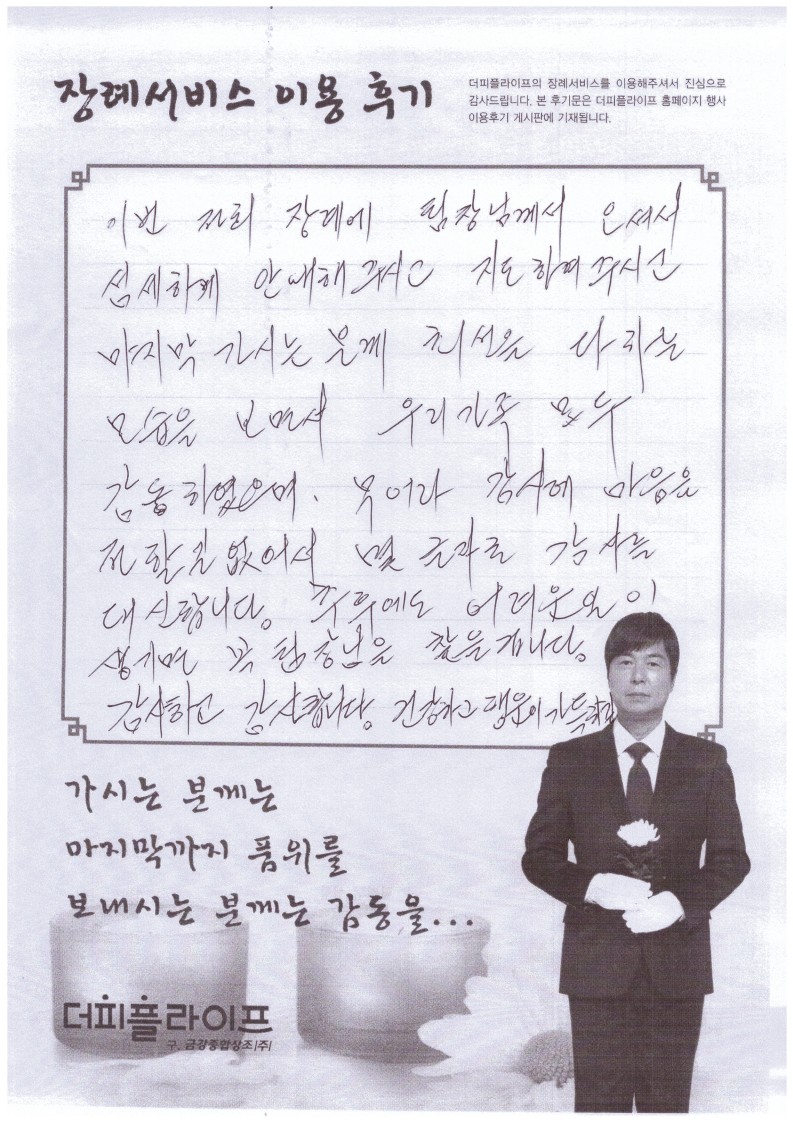 장례서비스 이용 후기
더피플라이프의 장례서비스를 이용해주셔서 진심으로
감사드립니다. 본 후기문은 더피플라이프 홈페이지 행사
이용후기 게시판에 기재됩니다.
이번 저희 장례에 팀장님께서 오셔서
섬세하게 안내해 주시고 지도하여 주시고
마지막 가시는 분께 최선을 다하는
모습을 보면서 우리가족 모두
감동하였으며, 무어라 감사에 마음을
전할길 없어서 몇 글자로 감사를
대신합니다. 추후에도 어려운일이
생기면 꼭 팀장님을 찾을겁니다.
감사하고 감사합니다. 건강하고 행운이 가득하
가시는 분께는
마지막까지 품위를
보내시는 분께는 감동을...
더피플라이프
구. 금강종합상조(주)